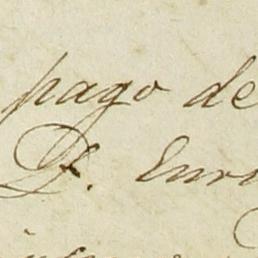 pago de
D. Enri